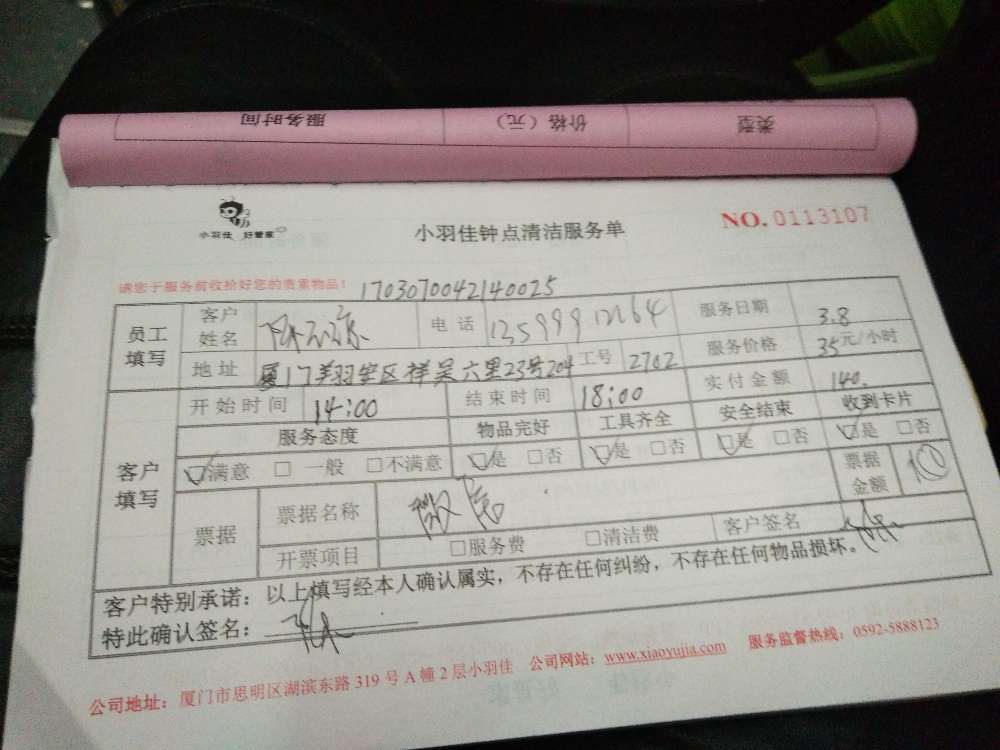 类型 价格（元） 服务时间
小羽佳 好管家
小羽佳钟点清洁服务单
NO. 0113107
请您于服务前收拾好您的贵重物品！ 1703070042140025
员工填写 客户姓名 电话 服务日期 3.8
地址 厦门翔安区祥吴六里23号204 工号 2702 服务价格 35元/小时
客户填写 开始时间 14:00 结束时间 18:00 实付金额 140.
服务态度 物品完好 工具齐全 安全结束 收到卡片
☑满意 □一般 □不满意 ☑是 □否 ☑是 □否 ☑是 □否 ☑是 □否
票据 票据名称 票据金额
开票项目 □服务费 □清洁费 客户签名
客户特别承诺：以上填写经本人确认属实，不存在任何纠纷，不存在任何物品损坏。
特此确认签名：
公司地址：厦门市思明区湖滨东路 319 号 A 幢 2 层小羽佳 公司网站：www.xiaoyujia.com 服务监督热线：0592-5888123